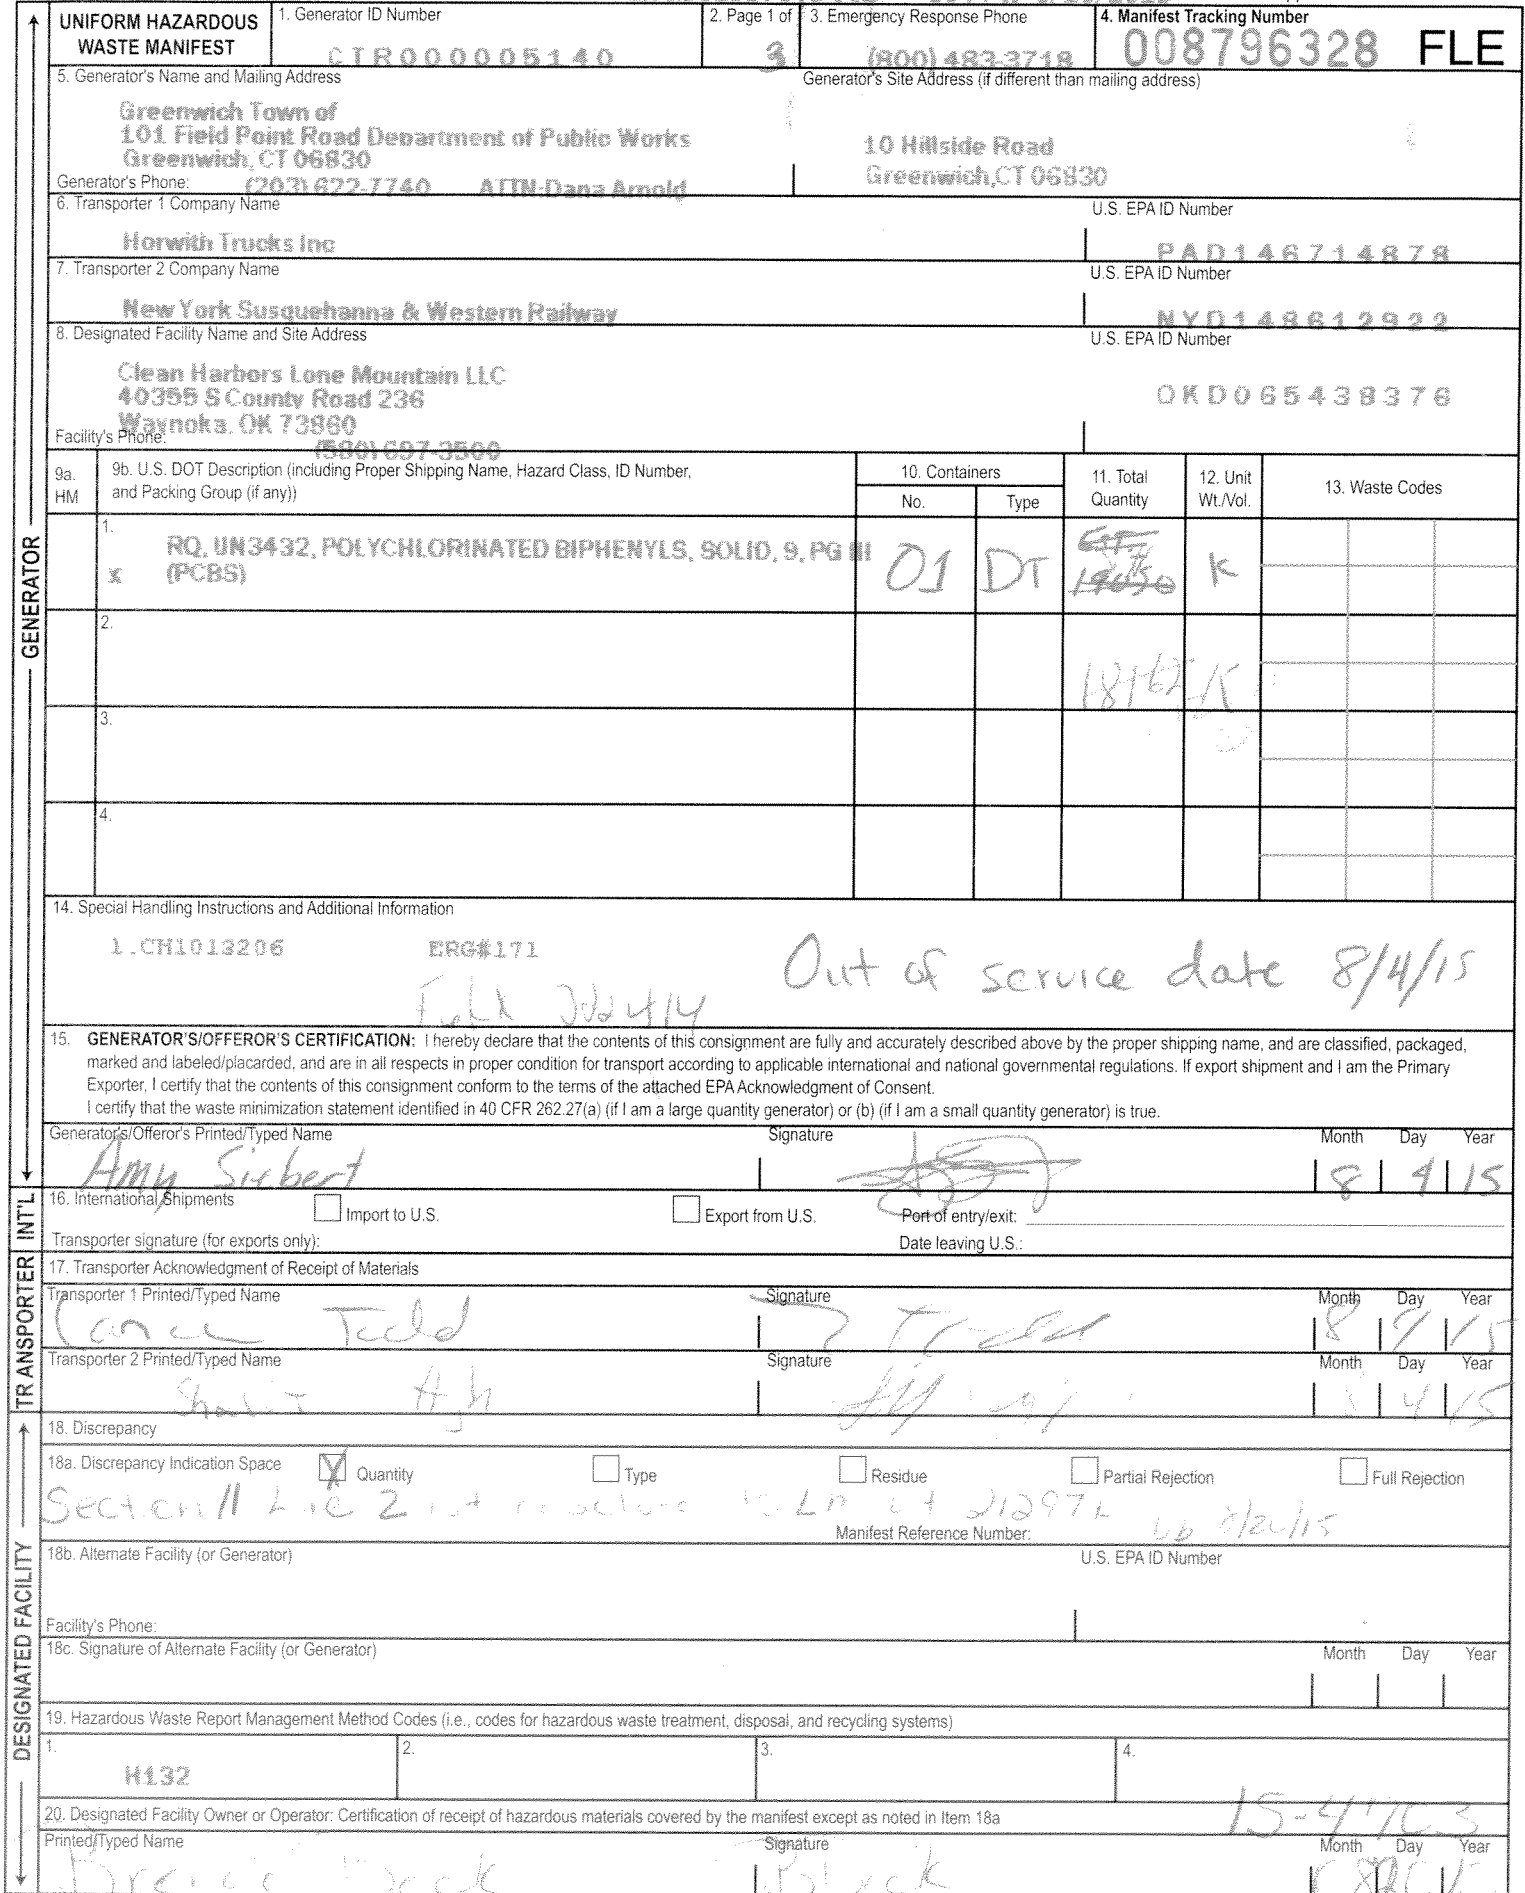 UNIFORM HAZARDOUS WASTE MANIFEST
1. Generator ID Number
CTR000005140
2. Page 1 of
3
3. Emergency Response Phone
(800) 483-3718
4. Manifest Tracking Number
008796328 FLE
5. Generator's Name and Mailing Address
Greenwich Town of
101 Field Point Road Department of Public Works
Greenwich, CT 06830
Generator's Phone: (203) 622-7740 ATTN:Dana Arnold
Generator's Site Address (if different than mailing address)
10 Hillside Road
Greenwich,CT 06830
6. Transporter 1 Company Name
Horwith Trucks Inc
U.S. EPA ID Number
PAD146714878
7. Transporter 2 Company Name
New York Susquehanna & Western Railway
U.S. EPA ID Number
NYD148612922
8. Designated Facility Name and Site Address
Clean Harbors Lone Mountain LLC
40355 S County Road 236
Waynoka, OK 73860
Facility's Phone: (580) 697-3500
U.S. EPA ID Number
OKD065438376
9a. HM
9b. U.S. DOT Description (including Proper Shipping Name, Hazard Class, ID Number, and Packing Group (if any))
10. Containers
No.
Type
11. Total Quantity
12. Unit Wt./Vol.
13. Waste Codes
GENERATOR
1.
x
RQ, UN3432, POLYCHLORINATED BIPHENYLS, SOLID, 9, PG III
(PCBS)
01 DT K
2.
3.
4.
14. Special Handling Instructions and Additional Information
1.CH1013206 ERG#171
Out of service date 8/4/15
15. GENERATOR'S/OFFEROR'S CERTIFICATION: I hereby declare that the contents of this consignment are fully and accurately described above by the proper shipping name, and are classified, packaged,
marked and labeled/placarded, and are in all respects in proper condition for transport according to applicable international and national governmental regulations. If export shipment and I am the Primary
Exporter, I certify that the contents of this consignment conform to the terms of the attached EPA Acknowledgment of Consent.
I certify that the waste minimization statement identified in 40 CFR 262.27(a) (if I am a large quantity generator) or (b) (if I am a small quantity generator) is true.
Generator's/Offeror's Printed/Typed Name
Signature
Month Day Year
Amy Siebert
8 4 15
INT'L
16. International Shipments
Import to U.S.
Export from U.S.
Port of entry/exit:
Transporter signature (for exports only):
Date leaving U.S.:
TRANSPORTER
17. Transporter Acknowledgment of Receipt of Materials
Transporter 1 Printed/Typed Name
Signature
Month Day Year
Todd
8 4 15
Transporter 2 Printed/Typed Name
Signature
Month Day Year
4 15
DESIGNATED FACILITY
18. Discrepancy
18a. Discrepancy Indication Space
X Quantity
Type
Residue
Partial Rejection
Full Rejection
Section 11 Line 2
Manifest Reference Number:
18b. Alternate Facility (or Generator)
U.S. EPA ID Number
Facility's Phone:
18c. Signature of Alternate Facility (or Generator)
Month Day Year
19. Hazardous Waste Report Management Method Codes (i.e., codes for hazardous waste treatment, disposal, and recycling systems)
1.
H132
2.
3.
4.
20. Designated Facility Owner or Operator: Certification of receipt of hazardous materials covered by the manifest except as noted in Item 18a
Printed/Typed Name
Signature
Month Day Year